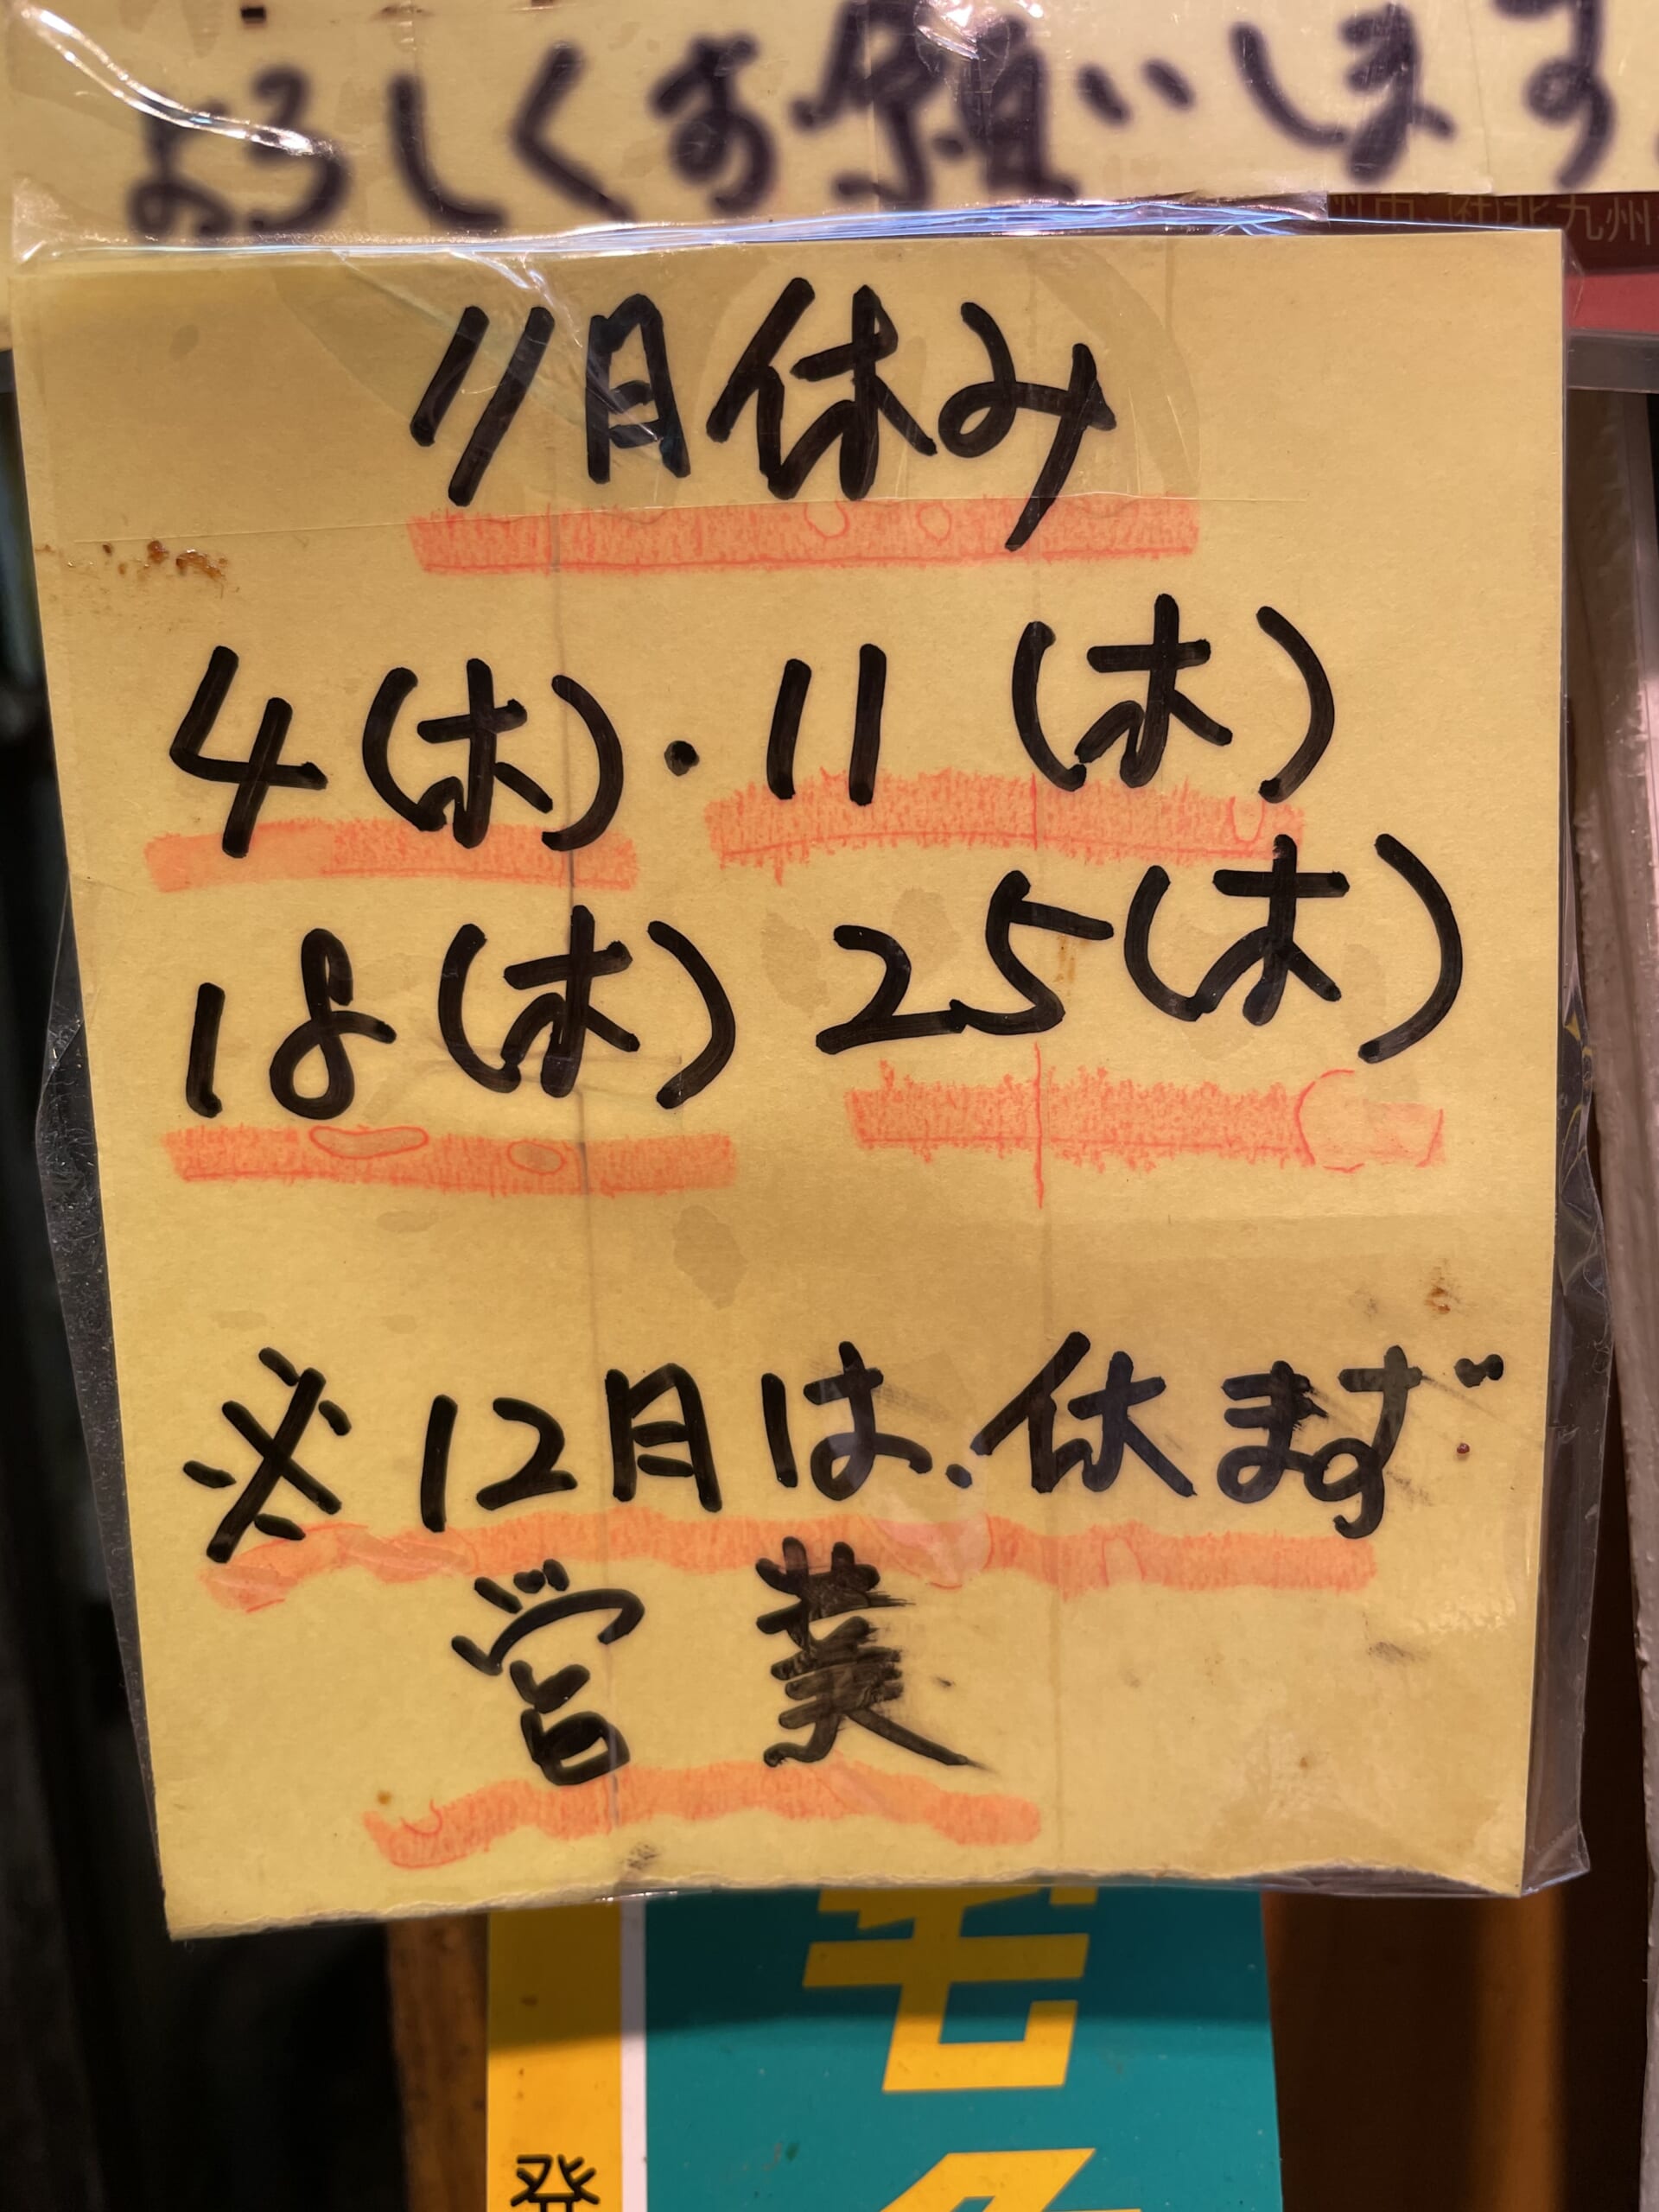 よろしくお願いします。
州市
北九州
11月休み
4(木)・11(木)
18(木) 25(木)
※12月は、休まず
営業
宅
発